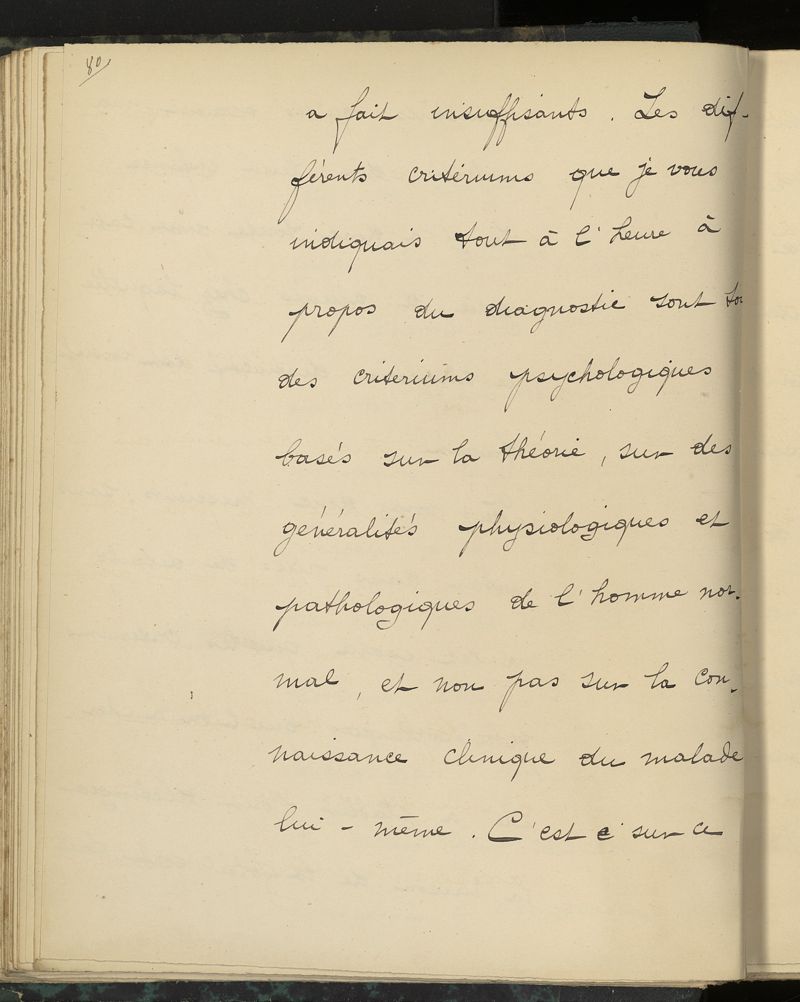 80,
a fait insuffisants. Les dif-
férents critériums que je vous
indiquais tout à l'heure à
propos du diagnostic sont
des criteriums psychologiques
basés sur la théorie, sur des
généralités physiologiques et
pathologiques de l'homme nor-
mal, et non pas sur la con-
naissance clinique du malade
lui-même. C'est sur ce